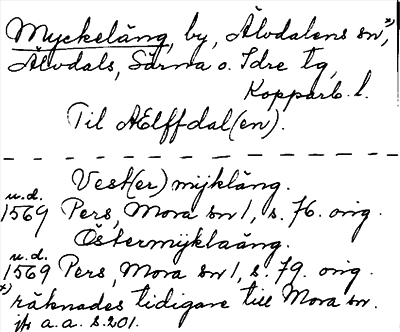 Myckeläng, by, Älvdalens sn*),
Älvdals, Särna o. Idre tg,
Kopparb. l.
Til AElffdal(en).
Vest(er)mijkläng.
u.d.
1569 Pers, Mora sn 1, s. 76. orig.
Östermijklaäng.
u.d.
1569 Pers, Mora sn 1, s. 79. orig.
*) räknades tidigare till Mora sn.
jfr a.a. s.201.